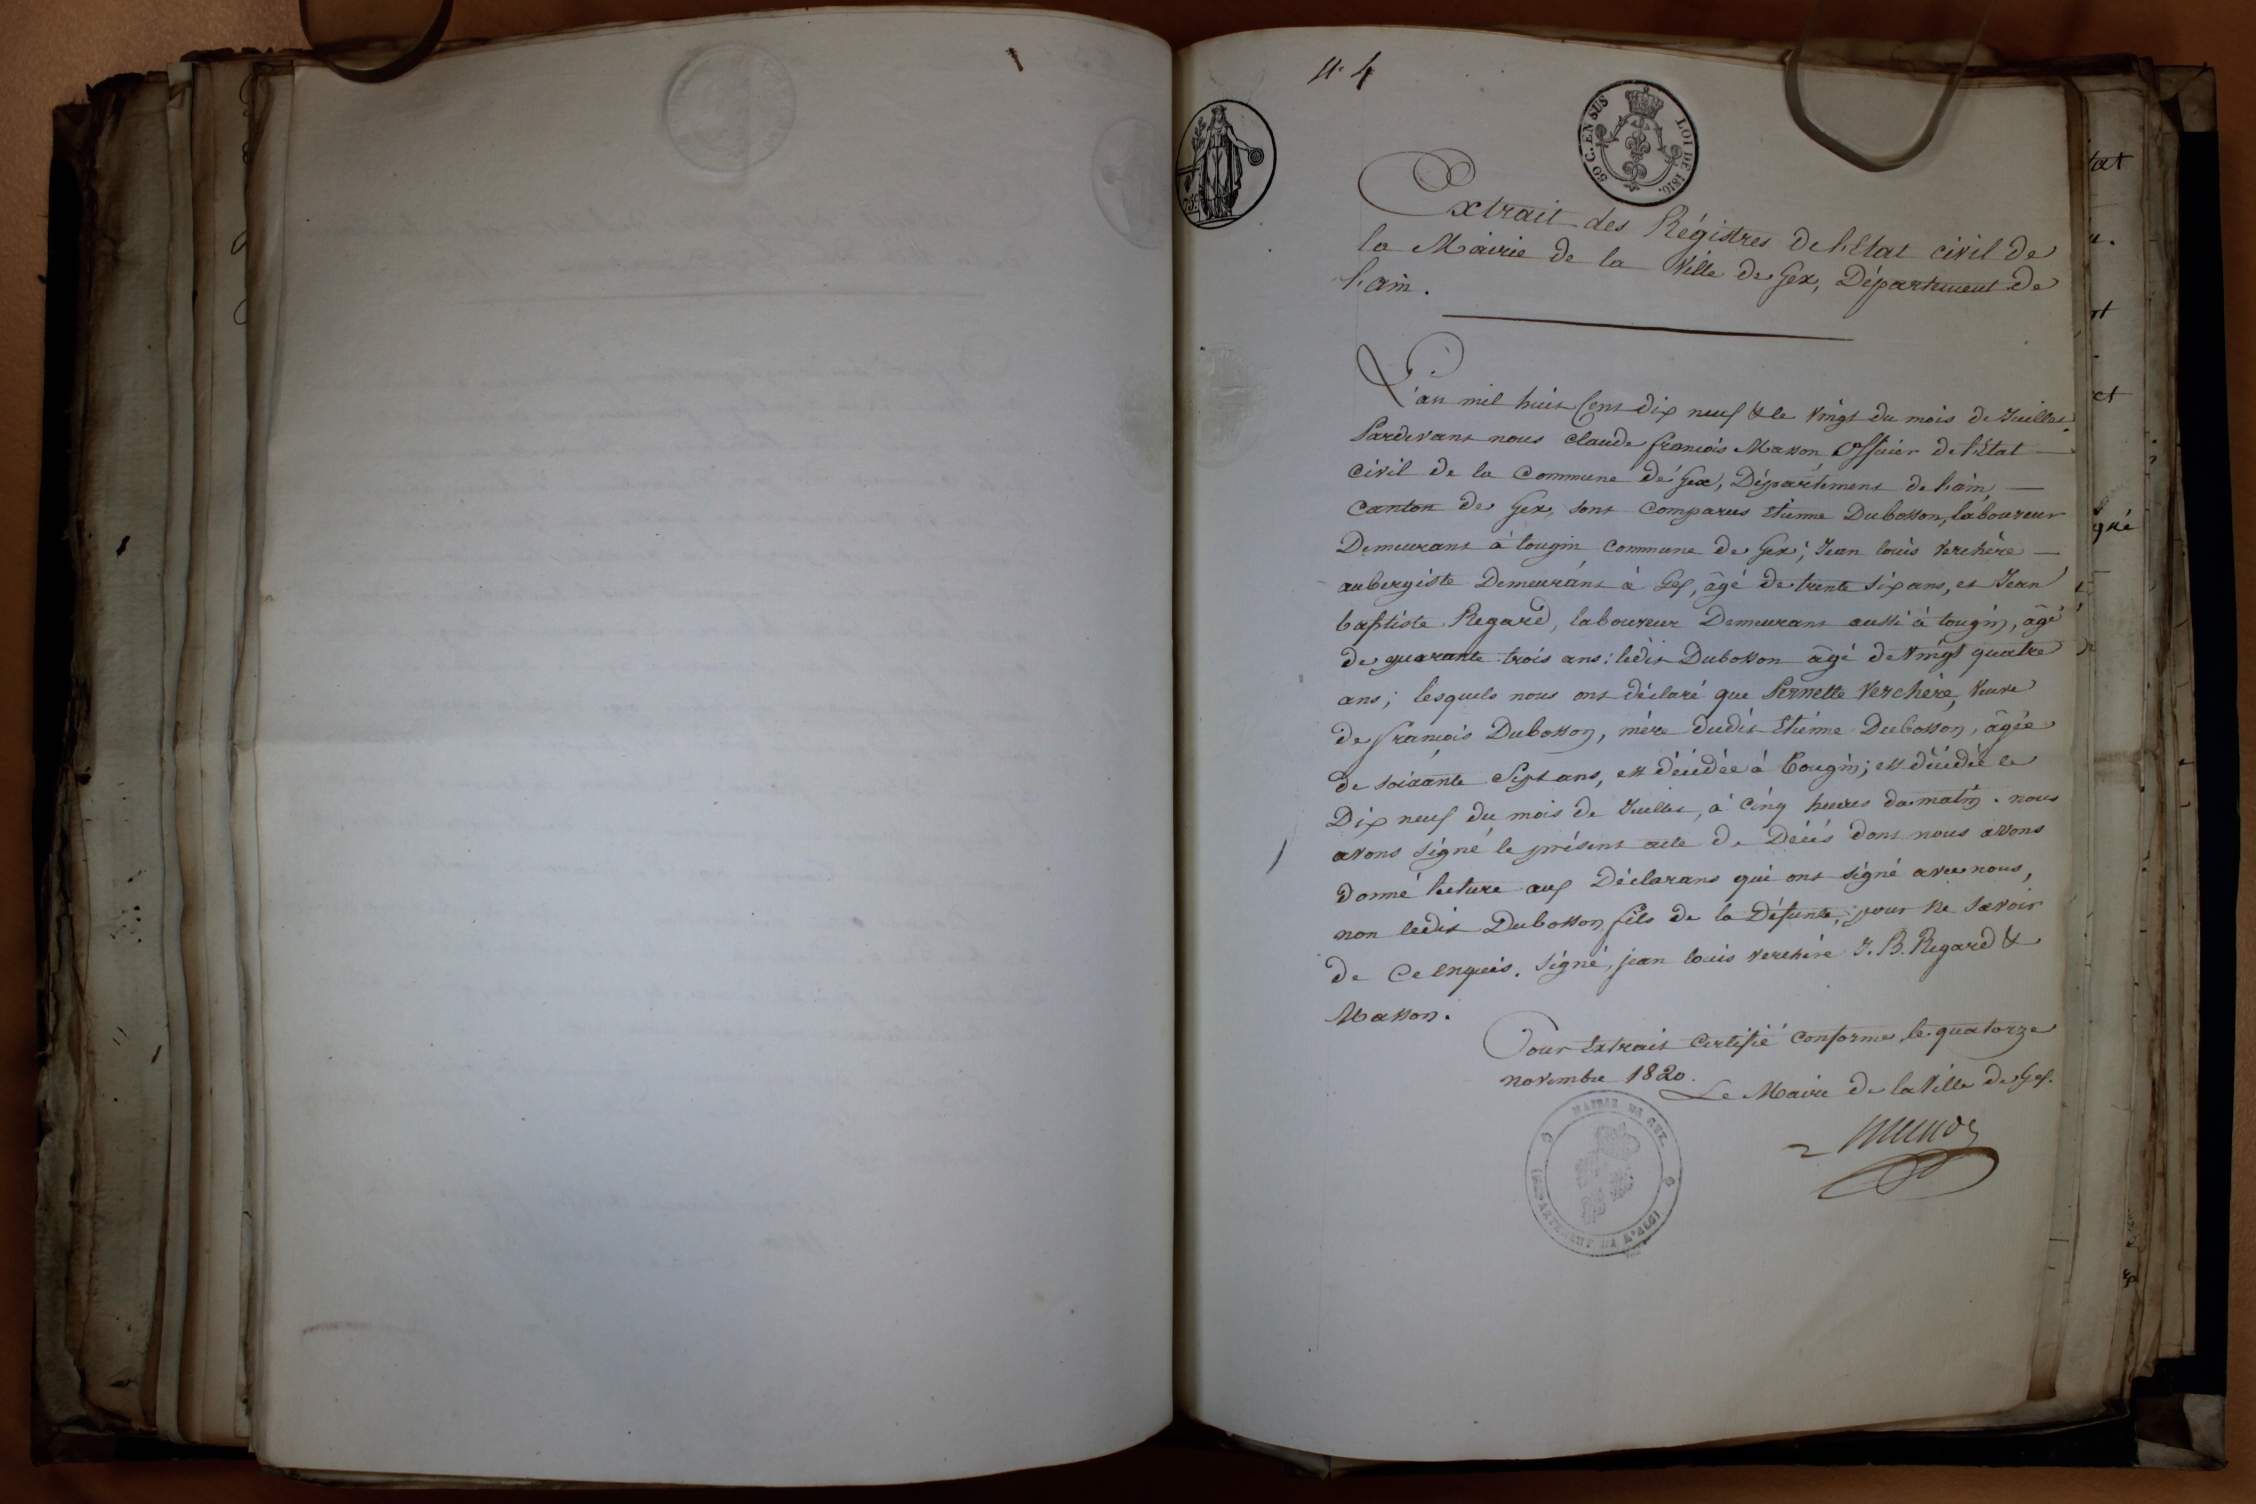 N° 4
50 C. EN SUS
LOI DE 1816.
75
Extrait des Régistres de l'Etat civil de
la Mairie de la Ville de Gex, Département de
l'ain.
L'an mil huit Cent dix neuf & le vingt du mois de Juillet
Pardevant nous claude françois Masson Officier de l'Etat
civil de la Commune de Gex, Département de l'ain,
Canton de Gex, sont comparus Etienne Dubosson, laboureur
Demeurant à tougin commune de Gex; Jean louis Verchère
aubergiste Demeurant à Gex, âgé de trente six ans, et Jean
baptiste Regard, laboureur Demeurant aussi à tougin, âgé
de quarante trois ans: ledit Dubosson âgé de vingt quatre
ans; lesquels nous ont déclaré que Pernette Verchère, Veuve
de françois Dubosson, mère dudit Etienne Dubosson, âgée
de soixante Sept ans, est décédée à Tougin; est décédée le
Dix neuf du mois de Juillet, à cinq heures du matin. nous
avons signé le présent acte de Décès dont nous avons
donné lecture aux Déclarans qui ont signé avec nous,
non ledit Dubosson fils de la Défunte, pour ne savoir
de ce enquis. Signé, jean louis verchére J. B. Regard &
Masson.
Pour Extrait certifié conforme, le quatorze
novembre 1820.
Le Maire de la Ville de Gex.
MAIRIE DE GEX.
DÉPARTEMENT DE L'AIN
tat
rt
et
gné